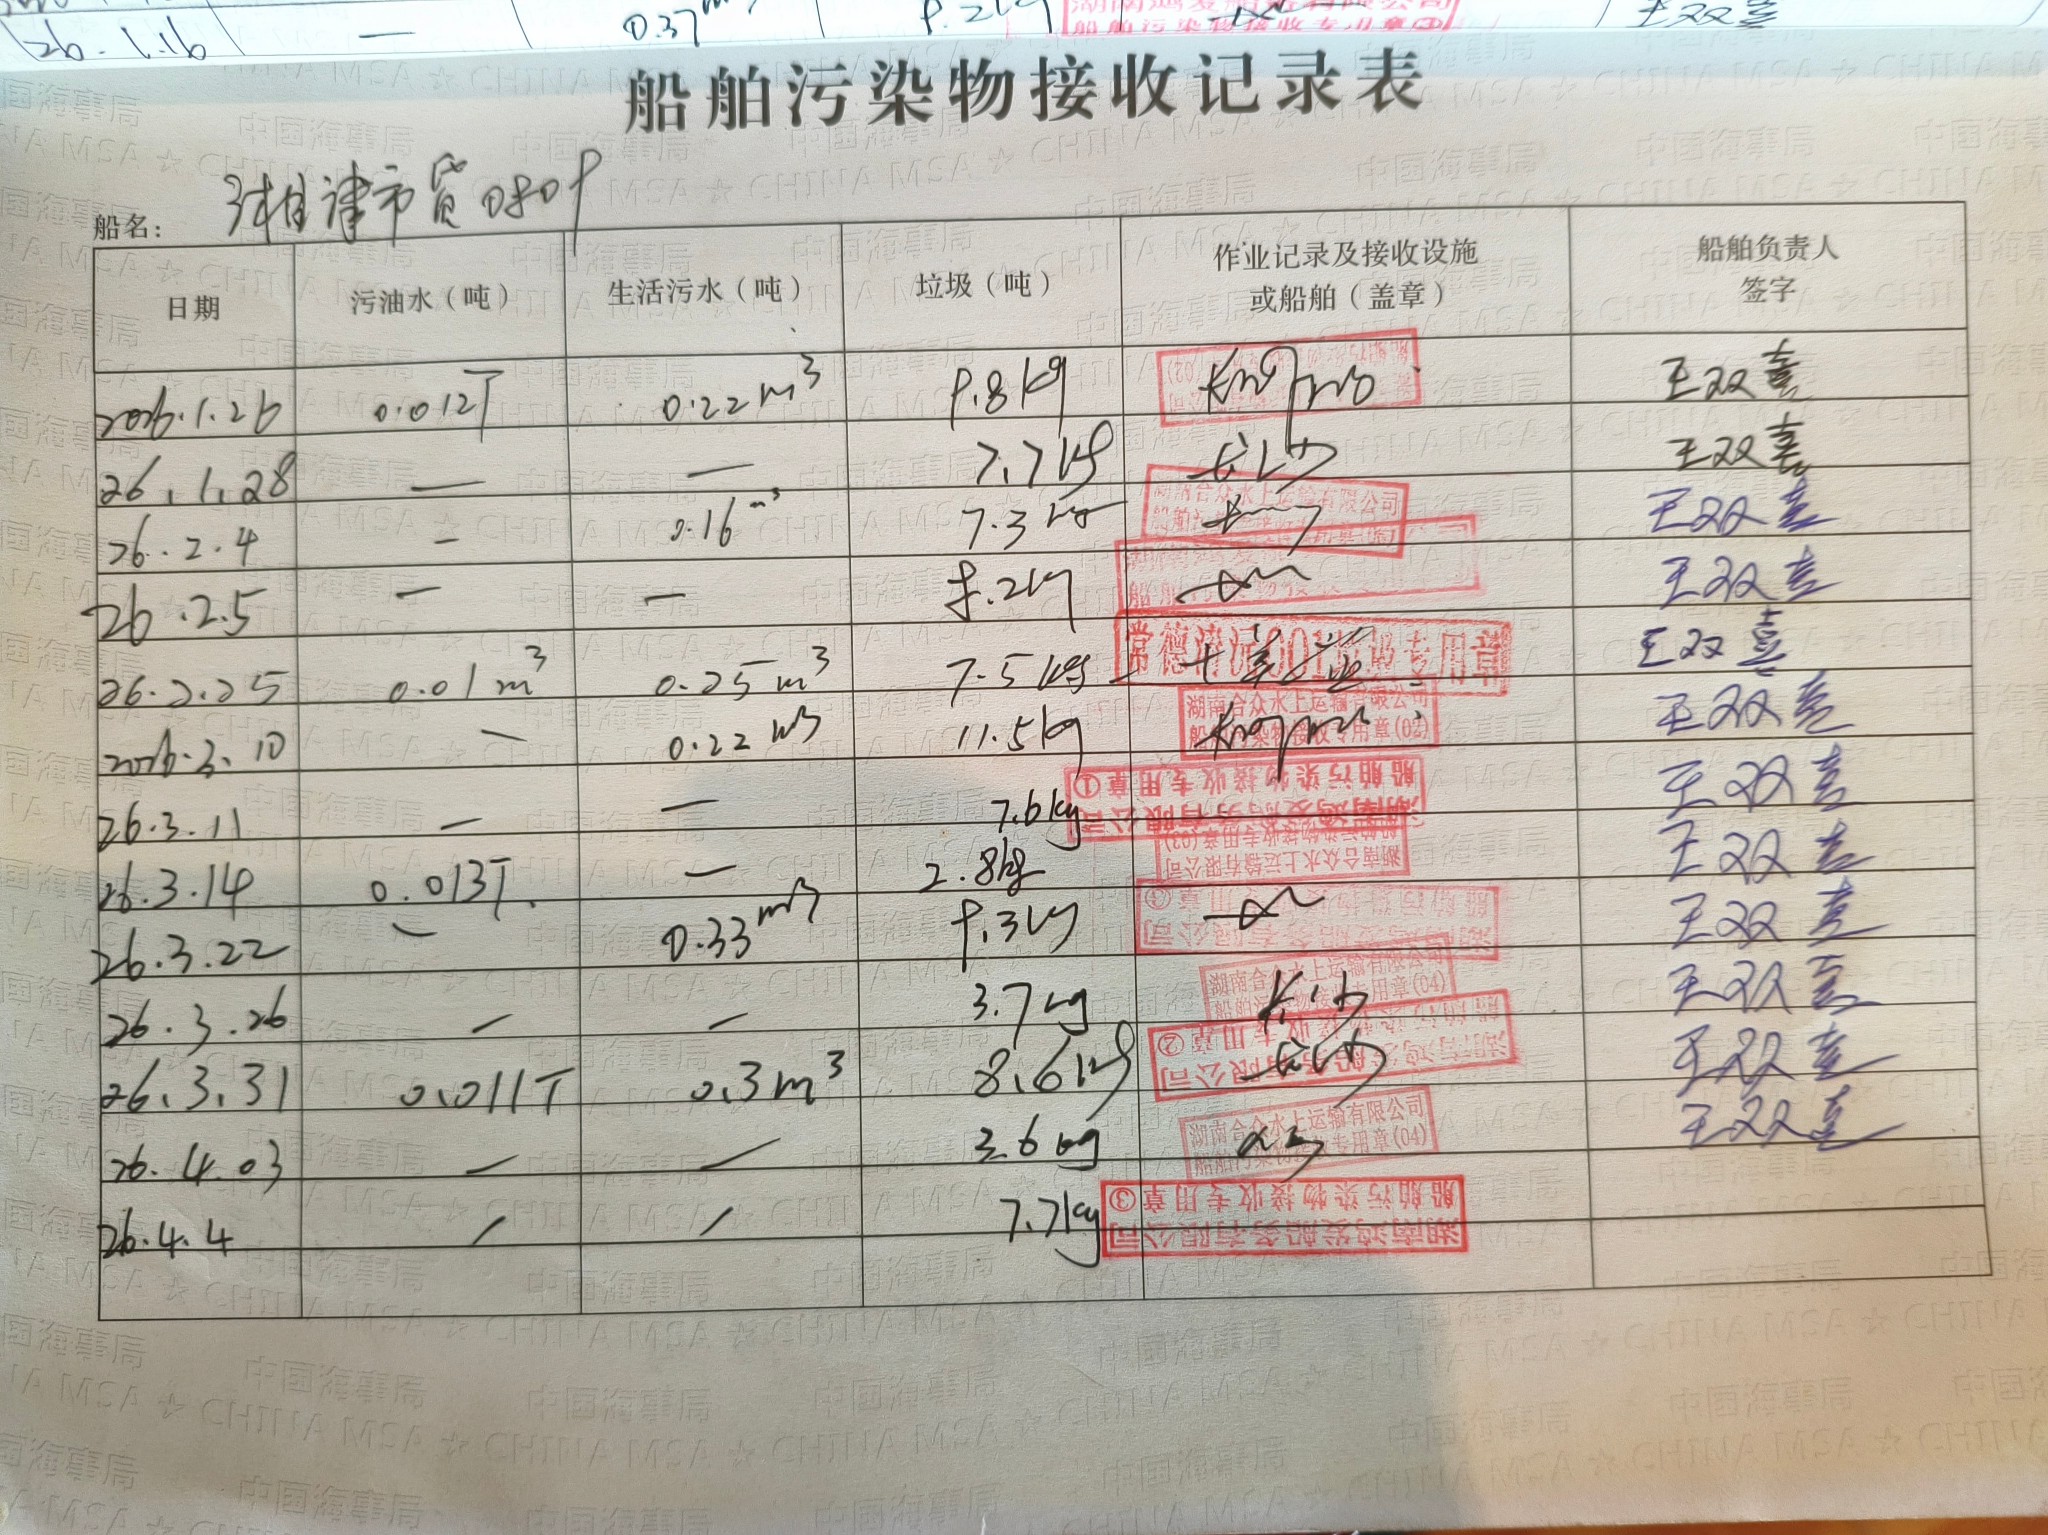 26.1.16 — 0.37m³ 9.2kg 船舶污染物接收专用章① 王双喜
船舶污染物接收记录表
船名： 湘津市货
日期 污油水（吨） 生活污水（吨） 垃圾（吨） 作业记录及接收设施或船舶（盖章） 船舶负责人签字
2026.1.26 0.012T 0.22m³ 9.8kg 王双喜
26.1.28 — — 7.7kg 长沙 王双喜
26.2.4 — 0.16m³ 7.3kg 湖南合众水上运输有限公司 王双喜
26.2.5 — — 8.2kg 王双喜
26.2.25 0.01m³ 0.25m³ 7.5kg 常德 专用章 王双喜
2026.3.10 — 0.22m³ 11.5kg 湖南合众水上运输有限公司 船舶污染物接收专用章(02) 王双喜
26.3.11 — — 7.6kg 湖南鸿发船务有限公司 船舶污染物接收专用章① 王双喜
26.3.14 0.013T. — 2.8kg 湖南合众水上运输有限公司 船舶污染物接收专用章(03) 王双喜
26.3.22 — 0.33m³ 9.3kg 王双喜
26.3.26 — — 3.7kg 湖南合众水上运输有限公司 船舶污染物接收专用章(04) 长沙 王双喜
26.3.31 0.011T 0.3m³ 8.6kg 湖南鸿发船务有限公司 船舶污染物接收专用章② 长沙 王双喜
26.4.03 — — 3.6kg 湖南合众水上运输有限公司 船舶污染物接收专用章(04) 王双喜
26.4.4 — — 7.7kg 湖南鸿发船务有限公司 船舶污染物接收专用章③